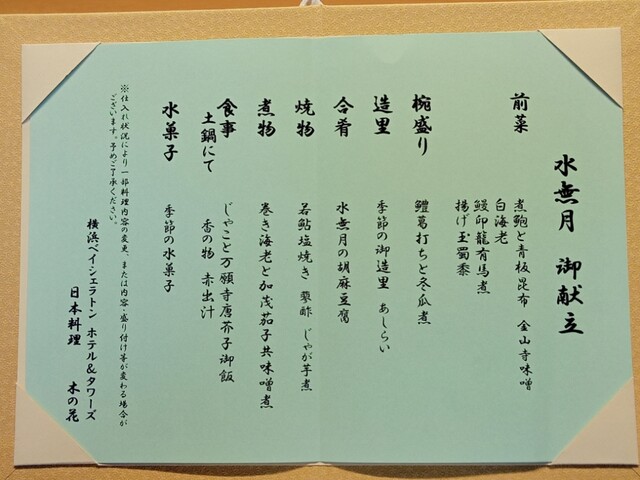 水無月 御献立
前菜
煮鮑と青板昆布 金山寺味噌
白海老
鰻印籠有馬煮
揚げ玉蜀黍
椀盛り
鱧葛打ちと冬瓜煮
造里
季節の御造里 あしらい
合肴
水無月の胡麻豆腐
焼物
若鮎塩焼き 蓼酢 じゃが芋煮
煮物
巻き海老と加茂茄子共味噌煮
食事
土鍋にて
じゃこと万願寺唐芥子御飯
香の物 赤出汁
水菓子
季節の水菓子
※仕入れ状況により一部料理内容の変更、または内容・盛り付け等が変わる場合が
ございます。予めご了承ください。
横浜ベイシェラトン ホテル&タワーズ
日本料理 木の花